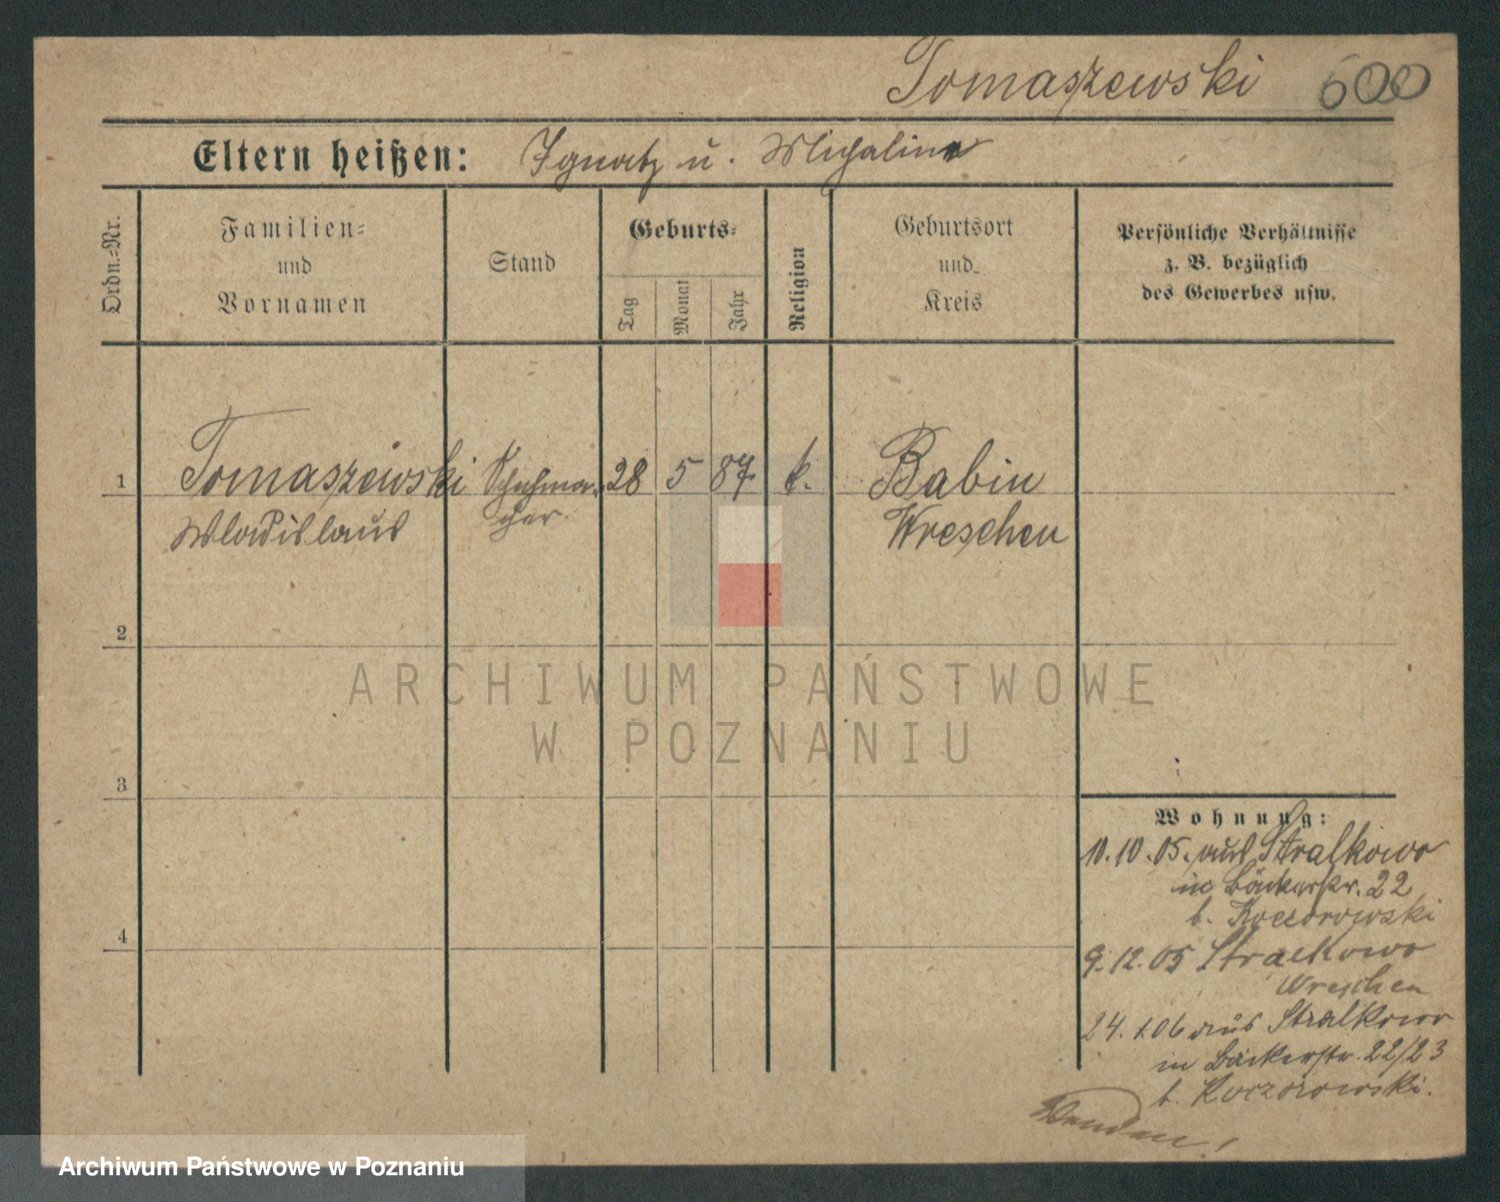 Tomaszewski 600
Eltern heißen: Ignatz u. Michalina
Ordn.-Nr.
Familien-
und
Vornamen
Stand
Geburts-
Tag
Monat
Jahr
Religion
Geburtsort
und
Kreis
Persönliche Verhältnisse
z. B. bezüglich
des Gewerbes usw.
1 Tomaszewski Schuhma- 28 5 87 k. Babin
Wladislaus cher. Wreschen
2
3
4
Wohnung:
10.10.05. aus Stralkowo
in Bäckerstr. 22
b. Koczorowski
9.12.05 Stralkowo
Wreschen
24.1.06 aus Stralkowo
in Bäckerstr. 22/23
b. Koczorowski.
Wenden!
ARCHIWUM PAŃSTWOWE
W POZNANIU
Archiwum Państwowe w Poznaniu